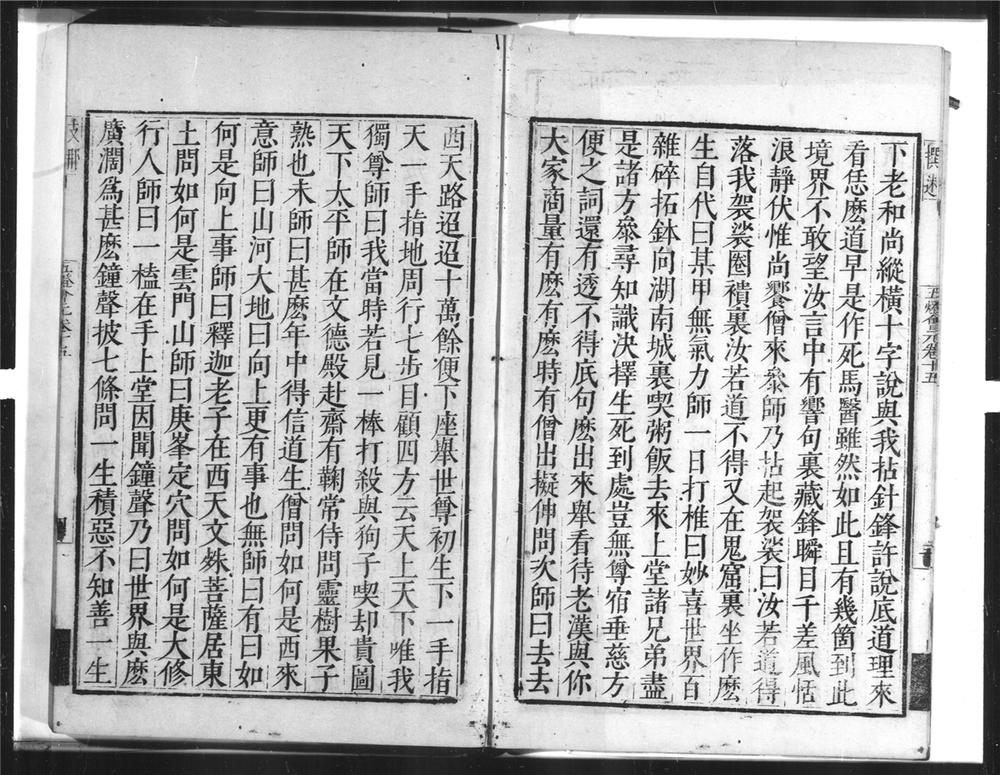 下老和尚縱橫十字說與我拈針鋒許說底道理來
看恁麽道早是作死馬醫雖然如此且有幾箇到此
境界不敢望汝言中有響句裏藏鋒瞬目千差風恬
浪靜伏惟尚饗僧來叅師乃拈起袈裟曰汝若道得
落我袈裟圈䙡裏汝若道不得又在鬼窟裏坐作麽
生自代曰某甲無氣力師一日打椎曰妙喜世界百
雜碎拓鉢向湖南城裏喫粥飯去來上堂諸兄弟盡
是諸方叅尋知識決擇生死到處豈無尊宿垂慈方
便之詞還有透不得底句麽出來舉看待老漢與你
大家商量有麽有麽時有僧出擬伸問次師曰去去
西天路迢迢十萬餘便下座舉世尊初生下一手指
天一手指地周行七步目顧四方云天上天下唯我
獨尊師曰我當時若見一棒打殺與狗子喫却貴圖
天下太平師在文德殿赴齋有鞠常侍問靈樹果子
熟也未師曰甚麽年中得信道生僧問如何是西來
意師曰山河大地曰向上更有事也無師曰有曰如
何是向上事師曰釋迦老子在西天文殊菩薩居東
土問如何是雲門山師曰庚峯定穴問如何是大修
行人師曰一榼在手上堂因聞鐘聲乃曰世界與麽
廣濶爲甚麽鐘聲披七條問一生積惡不知善一生
五燈會元卷十五